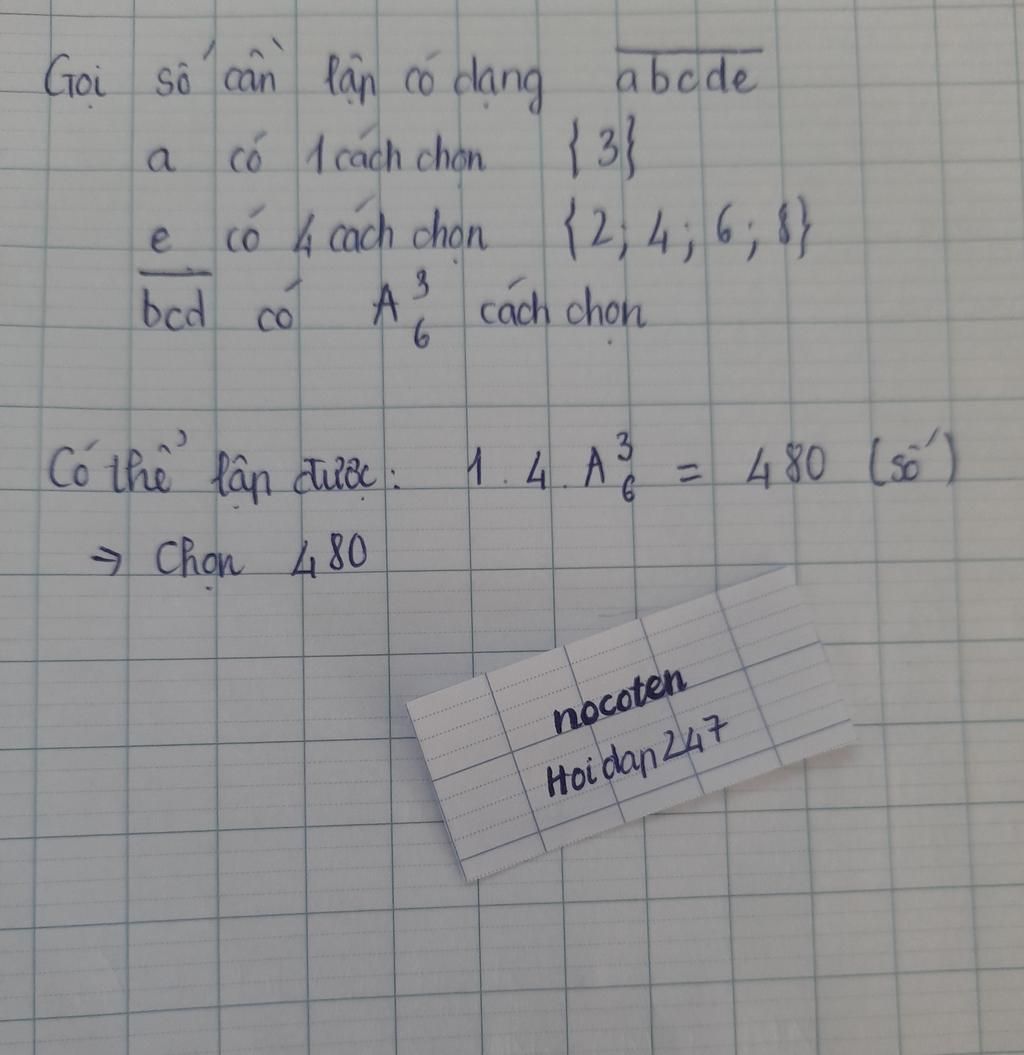 Gọi số cần lập có dạng \overline{abcde}
a có 1 cách chọn {3}
e có 4 cách chọn {2; 4; 6; 8}
\overline{bcd} có A_6^3 cách chọn
Có thể lập được: 1 . 4 . A_6^3 = 480 (số)
⇒ Chọn 480
nocoten
Hoidap247